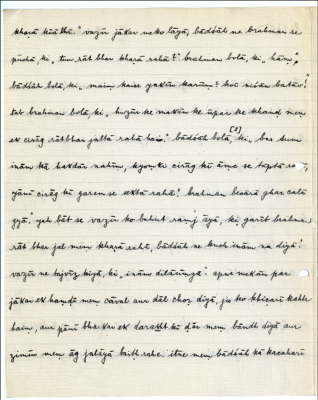 khaṛā kiā thā" vazīr jākar us ko lāyā, bādśāh ne brahman se
pūchā ki, "tum rāt bhar khaṛā rahā?" brahman bolā, ki, "hām̐";
bādśāh bolā, ki, "maim̐ kaise yakīn karūm̐? koi niśān batāo!"
tab brahman bolā, ki, "huzūr ke makān ke ūpar ke khand mem̐
ex cirāg rātbhar jaltā rahā hai." bādśāh bolā, ki, bas tum
[?]
inām kā hakdār nahīm̐, kyom̐ki cirāg kī
yānī cirāg kī garem se sektā rahā!" brahman becārā ghar calā
gyā." yeh bāt se vazīr ko bahut ramj āyā, ki garīb brahman
rāt bhar jel mem̐ khaṛā rahā, bādśāh ne kuch inām na diyā!
vazīr ne tajvīz kiyā, ki, inām dilāūm̐gā." apne makān par
jākar ex hamḍī mem̐ cāval aur dāl choṛ diyā, jis ko khicarī kahte
haim̐, aur pānī bhar kar ex daraxt kī ḍār mem̐ bāndh diyā aur
zimīn mem̐ āg jalāyā baiṭh rahe. itne mem̐ bādśāh kā kacaharī